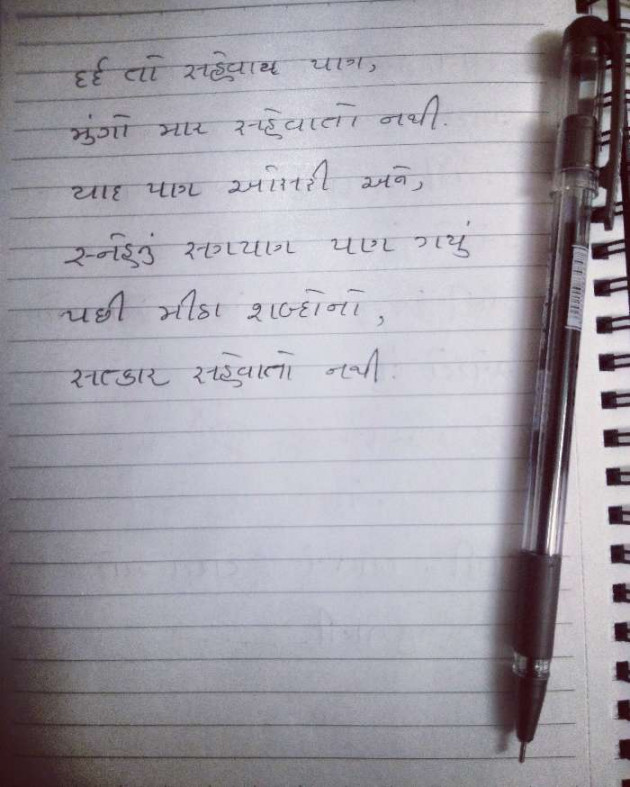 દર્દ તો સહેવાય પણ,
મુંગો માર સહેવાતો નથી.
યાદ પણ ઓસરી અને,
સ્નેહનું સગપણ પણ ગયું
પછી મીઠા શબ્દોનો,
સત્કાર સહેવાતો નથી.